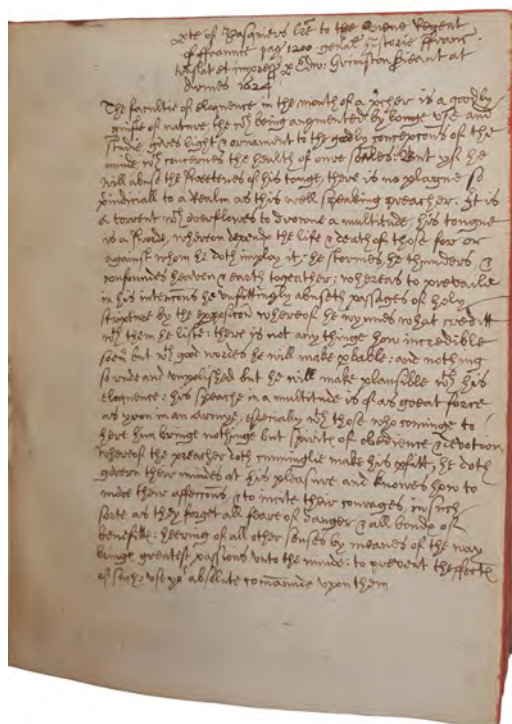 pte of Pasquiers lre to the Quene Regent
of ffraunce pag 1200 genal historie ffraunc
translat et impress p Edw: Grimston Srieant at
Armes 1624
The facultie of eloquence in the mouth of a pcher is a goodly
guifte of nature, the wch being augmented by longe vse and
studie, gives light & ornament to the godly concepcons of the
minde wch concernes the health of oure soules: But yf he
will abuse the sweetenes of his tonge, there is no plague so
piudiciall to a Realm as this well speaking preacher. It is
a torrent wch overflowes to drowne a multitude, his tongue
is a sworde, wherein depends the life & death of those for or
against whom he doth imploy it; he stormes he thunders &
confoundes heaven & earth togeather; whereas to prevaile
in his intencons he vnfittingly abuseth passages of holy
scripture by the exposicon whereof he wynnes what creditt
wth them he liste: there is not any thinge how incredible
soever but wth good wordes he will make pbable: and nothing
so rude and vnpolished but he will make plausible wth his
eloquence: his speache in a multitude is of as great force
as wyne in an Armye, especially wth those who cominge to
here him bringe nothinge but spirits of obedience & devotion
whereof the preacher doth cunninglie make his pfitt, he doth
govern their mindes at his pleasure and knowes how to
move their affeccons, & to incite their courages in such
sorte as they forget all feare of danger & all bonds of
benefitts: hearing of all other senses by meanes of the
bringe greatest passions vnto the minde: to prevent theffects
of such: vse yor absolute comaunde vpon them